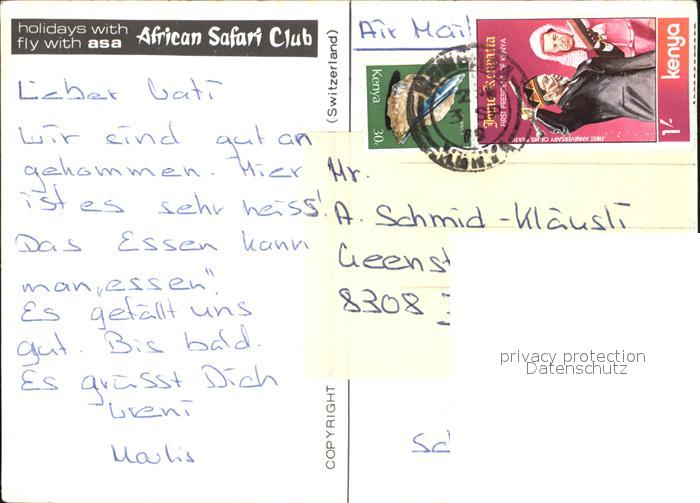 holidays with
fly with asa African Safari Club
Lieber Vati
Wir sind gut an
gekommen. Hier
ist es sehr heiss!
Das Essen kann
man „essen".
Es gefällt uns
gut. Bis bald.
Es grüsst Dich
Vreni
Marlis
COPYRIGHT
(Switzerland)
Air Mail
Kenya
30c
Jomo Kenyatta
FIRST PRESIDENT OF KENYA
FIRST ANNIVERSARY OF HIS DEATH
1/-
kenya
Mr.
A. Schmid-Kläusli
8308
privacy protection
Datenschutz